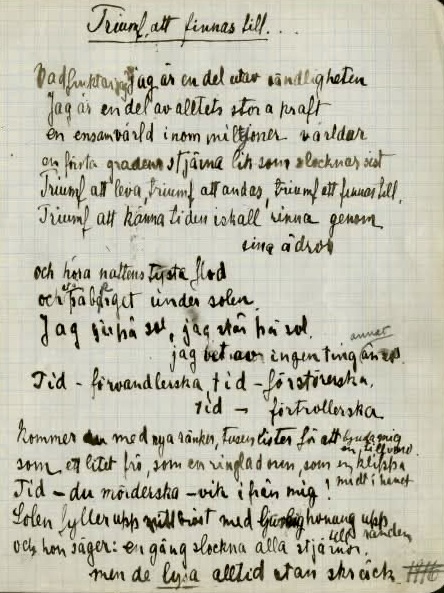 Triumf att finnas till...
Vad fruktar jag? Jag är en del utav oändligheten
Jag är en del av alltets stora kraft
en ensam värld inom miljoner världar
en första gradens stjärna lik som slocknar sist
Triumf att leva, triumf att andas, triumf att finnas till.
Triumf att känna tiden iskall rinna genom
sina ådror
och höra nattens tysta flod
och stå på berget under solen.
Jag går på sol, jag står på sol.
annat
jag vet av ingenting än sol.
Tid – förvandlerska, tid – förstörerska,
tid – förtrollerska
kommer du med nya ränker, tusen lister för att bjuda mig
en tillvaro
som ett litet frö, som en ringlad orm, som en klippa
midt i havet
Tid – du mörderska – vik ifrån mig!
Solen fyller upp mitt bröst med ljuvlig honung upp
till randen
och hon säger: en gång slockna alla stjärnor,
men de lysa alltid utan skräck.
1916